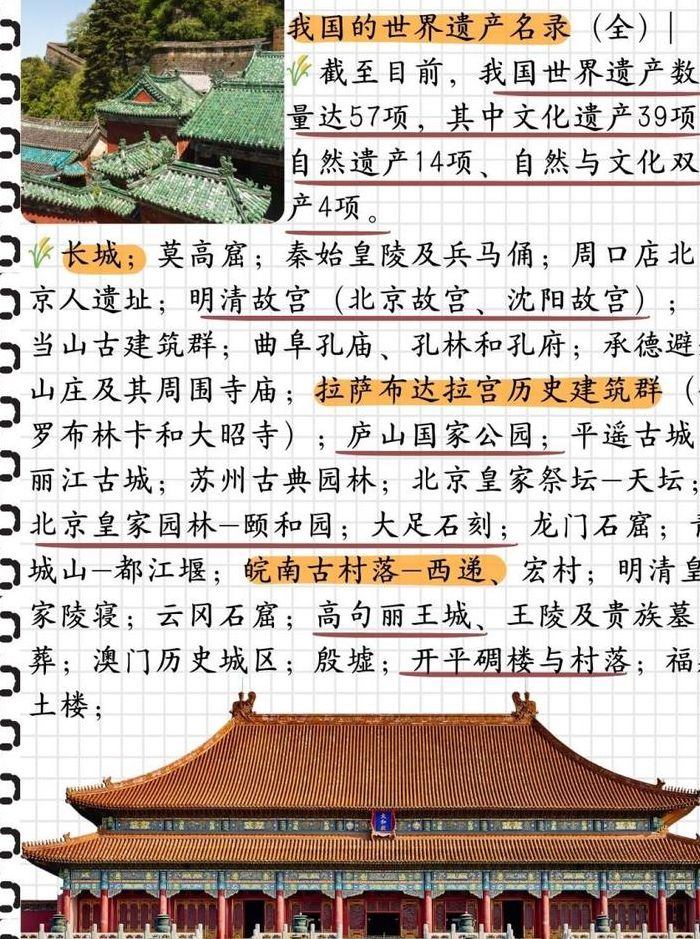 我国的世界遗产名录（全）|
截至目前，我国世界遗产数
量达57项，其中文化遗产39项
自然遗产14项、自然与文化双
产4项。
长城；莫高窟；秦始皇陵及兵马俑；周口店北
京人遗址；明清故宫（北京故宫、沈阳故宫）；
当山古建筑群；曲阜孔庙、孔林和孔府；承德避
山庄及其周围寺庙；拉萨布达拉宫历史建筑群（
罗布林卡和大昭寺）；庐山国家公园；平遥古城
丽江古城；苏州古典园林；北京皇家祭坛—天坛；
北京皇家园林—颐和园；大足石刻；龙门石窟；
城山—都江堰；皖南古村落—西递、宏村；明清皇
家陵寝；云冈石窟；高句丽王城、王陵及贵族墓
葬；澳门历史城区；殷墟；开平碉楼与村落；福
土楼；
太和殿